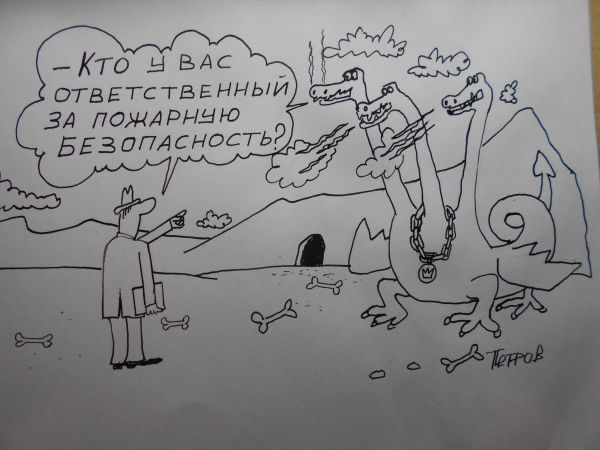 - КТО У ВАС
ОТВЕТСТВЕННЫЙ
ЗА ПОЖАРНУЮ
БЕЗОПАСНОСТЬ?
ПЕТРОВ